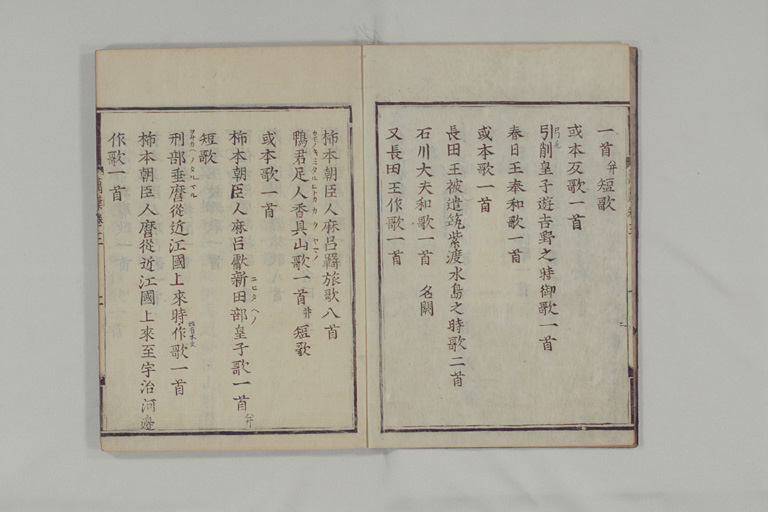 一首并短歌
或本反歌一首
引削皇子遊吉野之時御歌一首
春日王奉和歌一首
或本歌一首
長田王被遣筑紫渡水島之時歌二首
石川大夫和歌一首 名闕
又長田王作歌一首
柿本朝臣人麻呂羇旅歌八首
鴨君足人香具山歌一首并短歌
或本歌一首
柿本朝臣人麻呂獻新田部皇子歌一首并
短歌
刑部垂麿從近江國上來時作歌一首
柿本朝臣人麿從近江國上來至宇治河邊
作歌一首